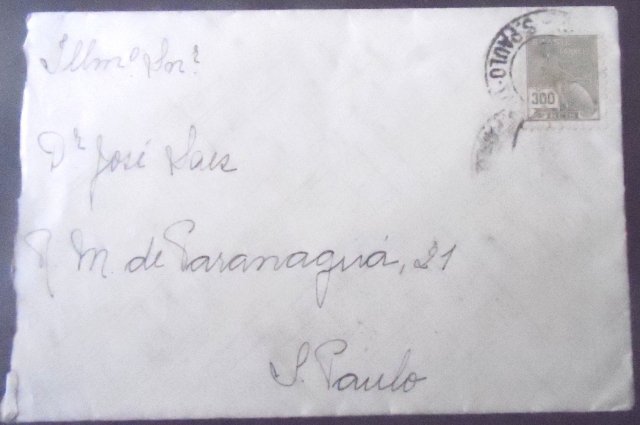 S. PAULO
300
Illmº Snr.
Dr José Saes
R M. de Paranaguá, 21
S. Paulo